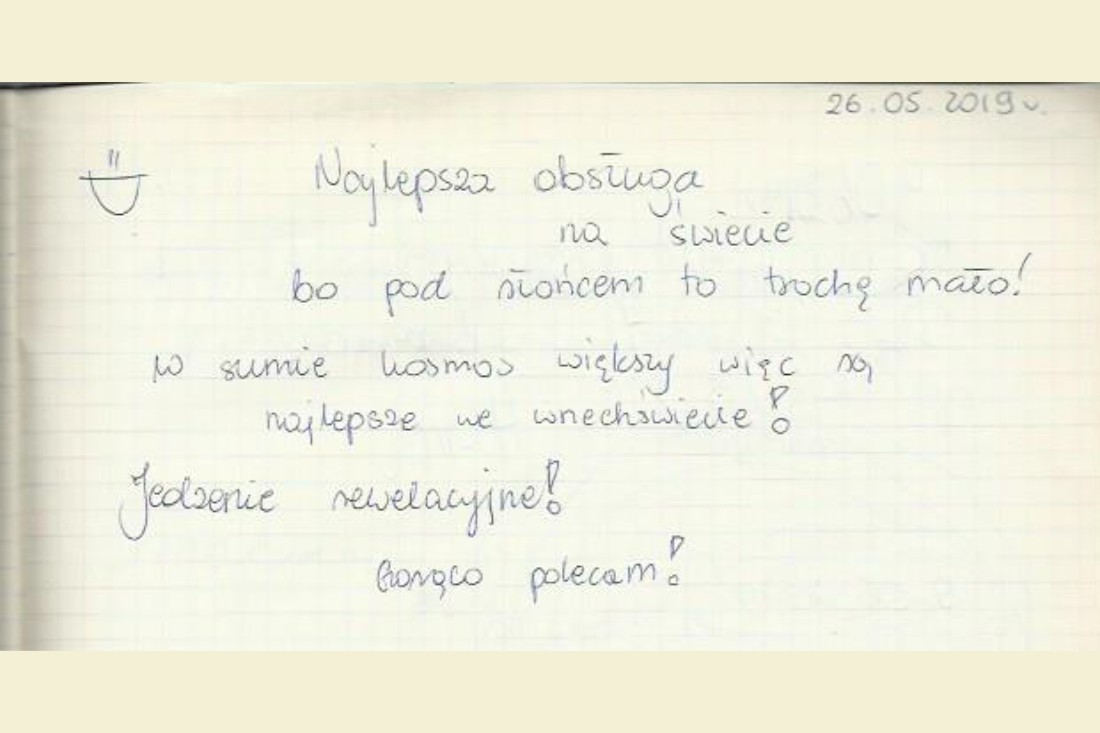 26.05.2019r.
Najlepsza obsługa
na świecie
bo pod słońcem to trochę mało!
W sumie kosmos większy więc są
najlepsze we wszechświecie!
Jedzenie rewelacyjne!
Gorąco polecam!